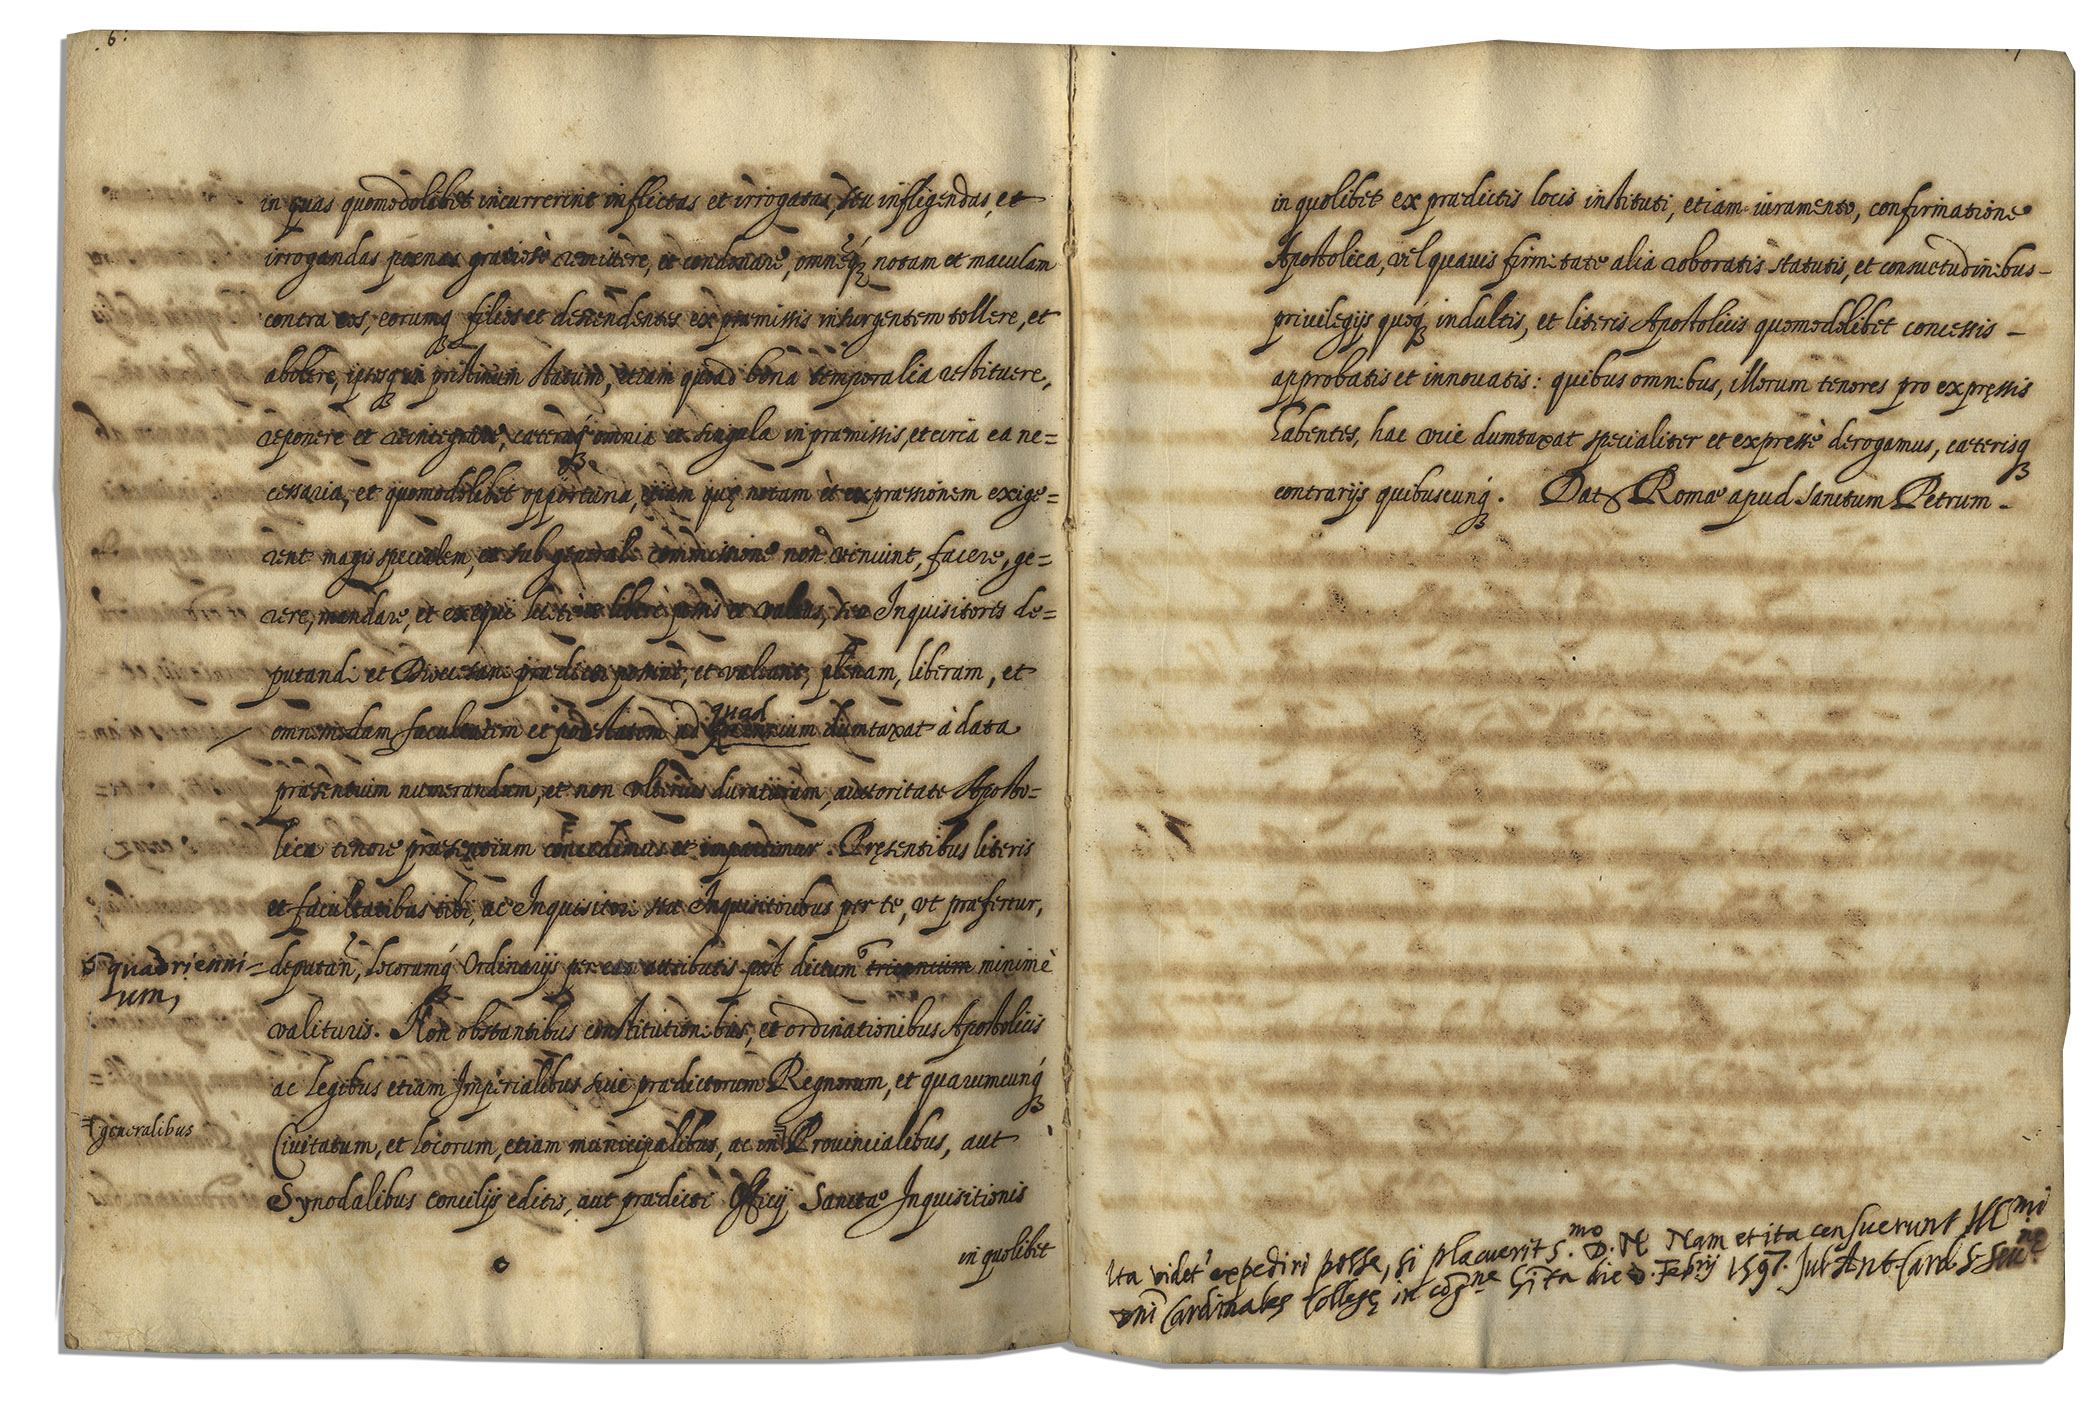 6.
in quas quomodolibet incurrerint inflictas et irrogatas, seu infligendas, et
irrogandas poenas gratiosè remittere, et condonare, omneq́ꝫ notam et maculam
contra eos, eorumqꝫ filios et descendentes ex praemissis insurgentem tollere, et
abolere, ipsosqꝫ in pristinum statum, etiam quoad bona temporalia restituere,
reponere et reintegrare, caeteraq́ꝫ omnia et singula in praemissis, et circa ea ne=
cessaria, et quomodolibet opportuna, etiam quę notam et expressionem exige=
rent magis specialem, et sub generali commissione non venirent, facere, ge=
rere, mandare, et exequi licitè et liberè possis et valeas, seu Inquisitores de=
putandi et Dioecesani praedicti possint, et valeant, plenam, liberam, et
omnimodam facultatem et potestatem ad quad
riennium dumtaxat à data
praesentium numerandum, et non ulterius duraturam, auctoritate Aposto=
lica tenore praesentium concedimus et impartimur. Pręsentibus literis
et facultatibus tibi, ac Inquisitori seu Inquisitoribus per te, vt praefertur,
quadrienni=
um,
deputan̄, locorumq́ꝫ Ordinarijs per eas attributis post dictum triennium minimè
valituris. Non obstantibus constitutionibus, et ordinationibus Apostolicis
ac legibus etiam Imperialibus siue praedictorum Regnorum, et quarumcunq́ꝫ
generalibus
Ciuitatum, et locorum, etiam municipalibus, ac in Prouincialibus, aut
Synodalibus concilijs editis, aut praedicti Officij Sanctae Inquisitionis
in quolibet
in quolibet ex praedictis locis instituti, etiam iuramento, confirmatione
Apostolica, vel quauis firmitate alia roboratis statutis, et consuetudinibus
privilegijs quoq́ꝫ indultis, et literis Apostolicis quomodolibet concessis
approbatis et innouatis: quibus omnibus, illorum tenores pro expręssis
habentes, hac vice dumtaxat specialiter et expressè derogamus, caeterisqꝫ
contrarijs quibuscunq́ꝫ. Dat Romae apud Sanctum Petrum
Ita videt' expediri posse, si placuerit S.mo D. N. Nam et ita censuerunt Ill.mi
Dni Cardinales Collegę in cōg.ne die Febrij 1597. Jul. Ant. Card. S. Seu.ne